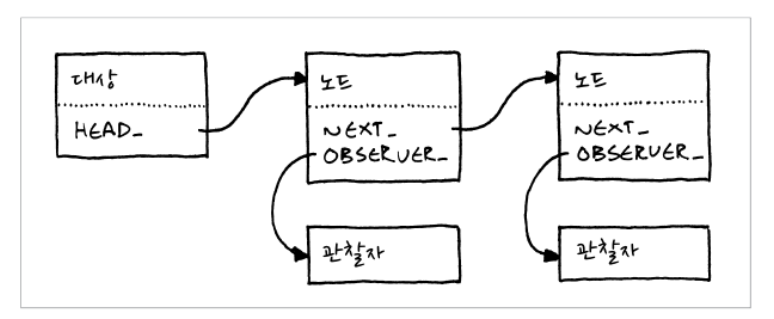 대상
HEAD_
노드
NEXT_
OBSERVER_
관찰자
노드
NEXT_
OBSERVER_
관찰자